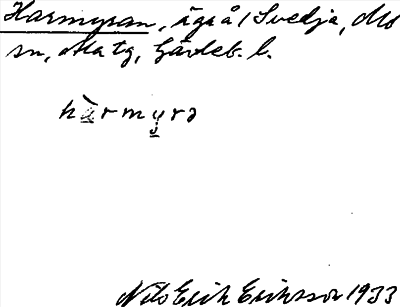 Harmyran, ägoå, Svedja, Mo
sn, Ala tg, Gävleb. l.
hàrmyrə
Nils Erik Eriksson 1933